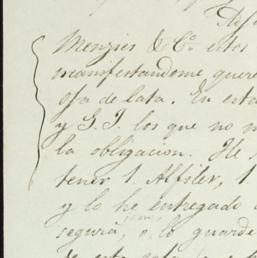 Menzies & Co. estos
manifestandome que
de lata. En esta
y G. J. los que no
la obligacion. He
tener 1. Alfiler, 1
y lo he entregado
segura, o lo guarde
de esta